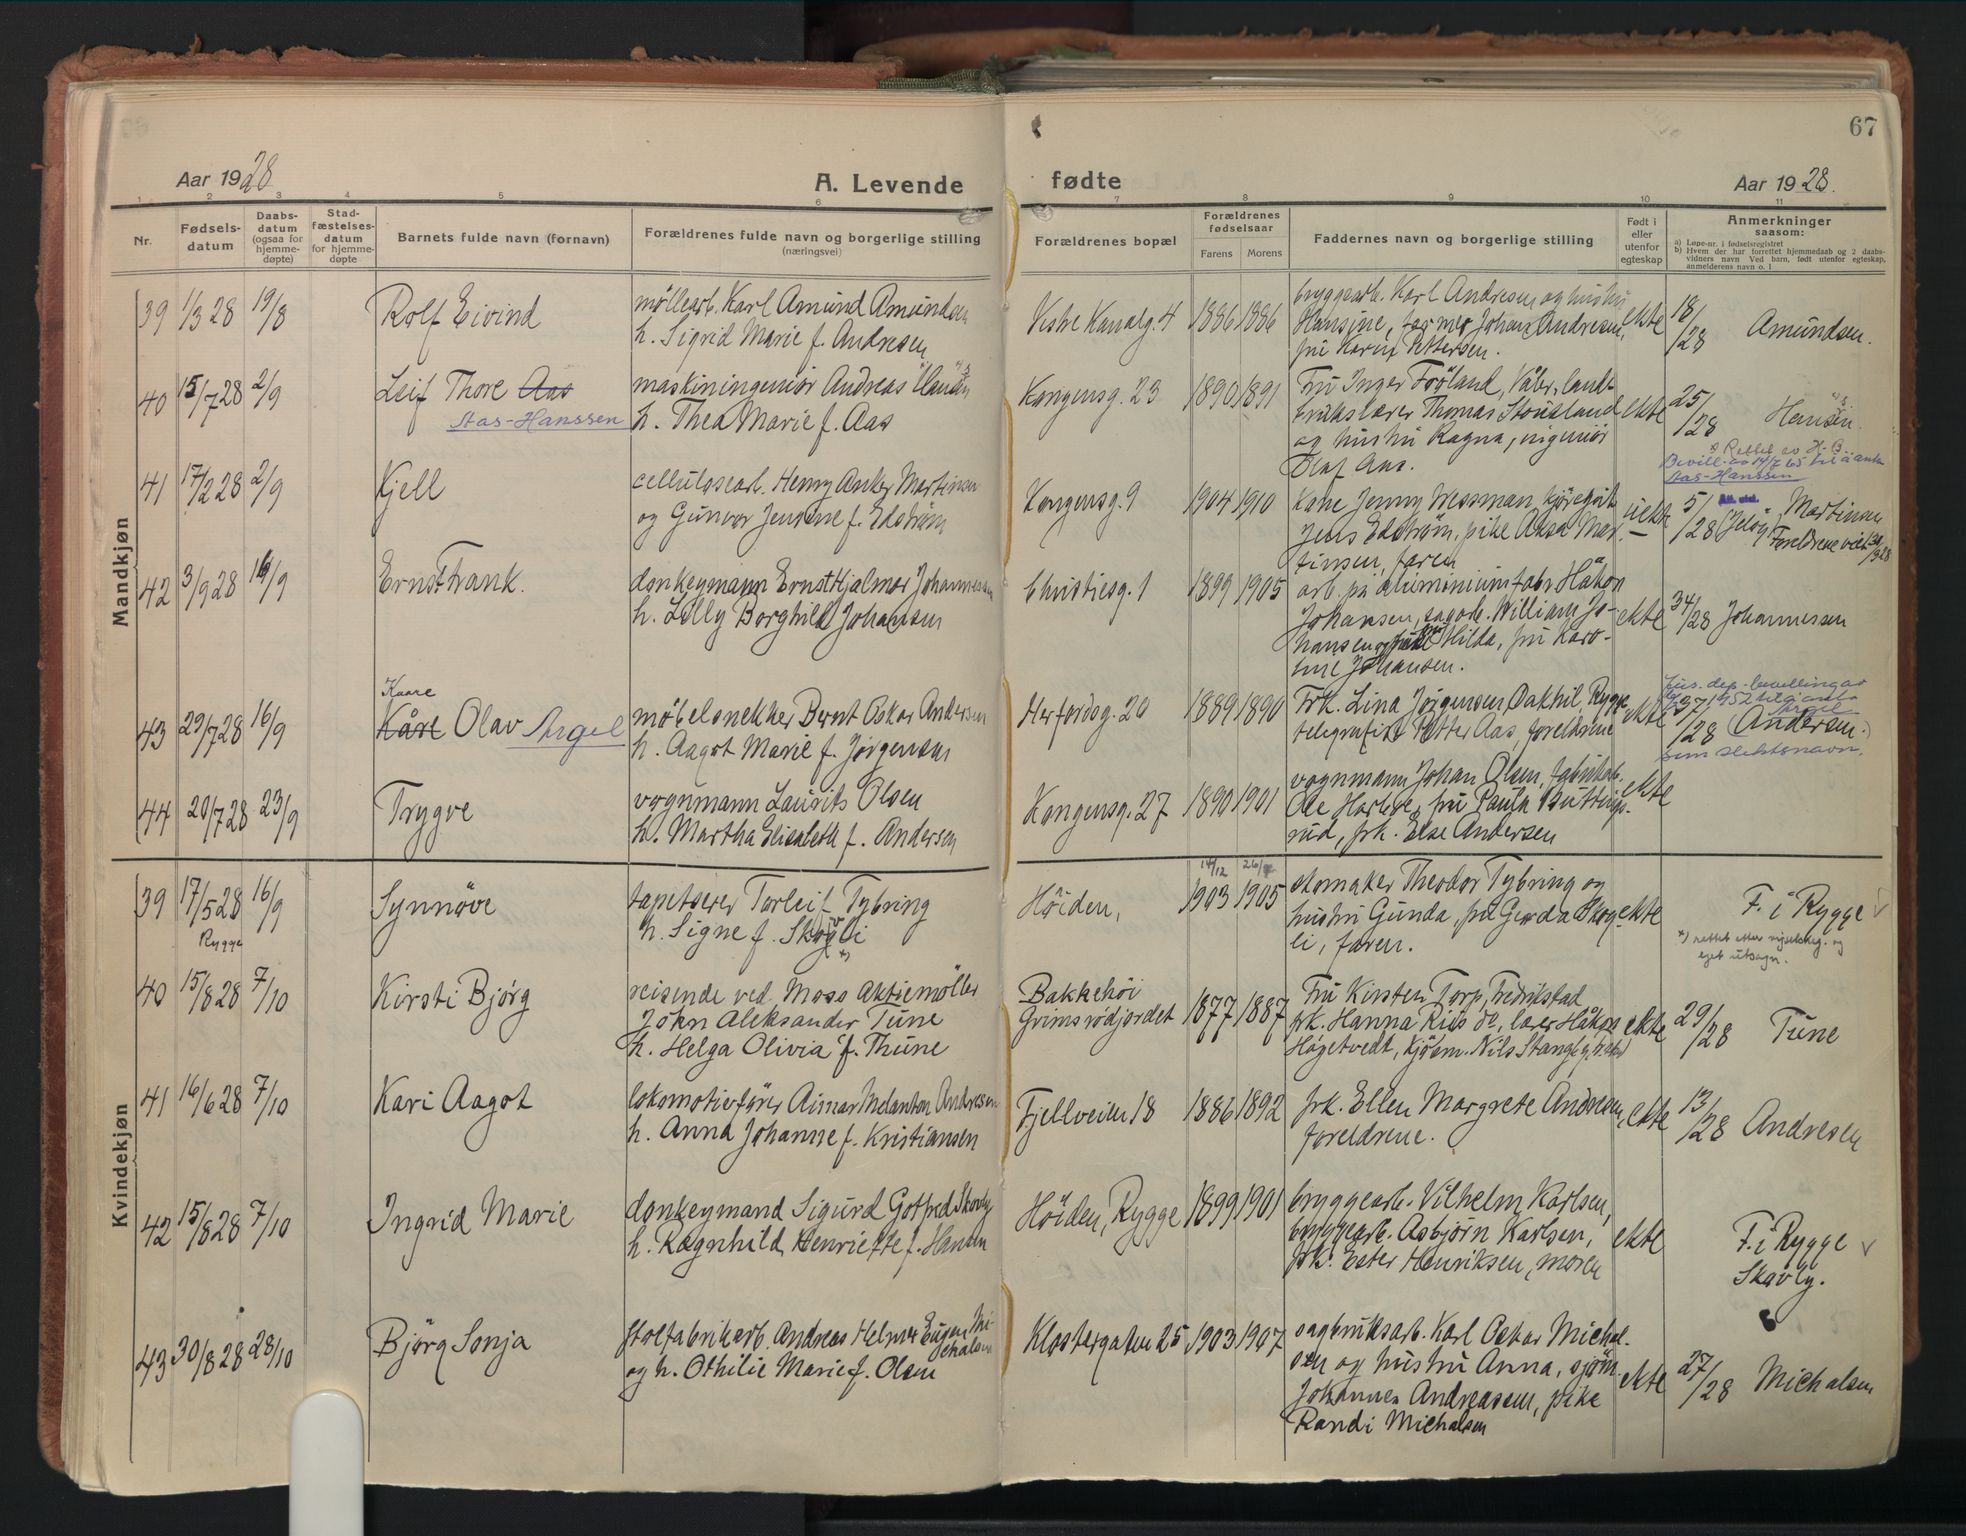 67
Aar 1928
A. Levende
fødte
Aar 1928.
1 2 3 4 5 6 7 8 9 10 11
Nr.
Fødsels-
datum
Daabs-
datum
(ogsaa for
hjemme-
døpte)
Stad-
fæstelses-
datum
for hjemme-
døpte
Barnets fulde navn (fornavn)
Forældrenes fulde navn og borgerlige stilling
(næringsvei)
Forældrenes bopæl
Forældrenes
fødselsaar
Farens Morens
Faddernes navn og borgerlige stilling
Født i
eller
utenfor
egteskap
Anmerkninger
saasom:
a) Løpe-nr. i fødselsregistret
b) Hvem der har forrettet hjemmedaab og 2 daabs-
vidners navn Ved barn, født utenfor egteskap,
anmelderens navn o. l
Mandkjøn
39 1/3 28 19/8 Rolf Eivind
møllearb. Karl Amund Amundsen
h. Sigrid Marie f. Andresen
Vestre Kanalg. 4 1886 1886
bryggearb. Karl Andresen og hustru
Hansine, Johan Andresen,
fru Karin Pettersen.
ekte 18/28 Amundsen.
40 15/7 28 2/9 Leif Thore Aas
Aas-Hanssen
maskiningeniør Andreas Hansen
h. Thea Marie f. Aas
Kongensg. 23 1890 1891
Fru Inger Fröland, Våler, land-
brukslærer Thomas Stousland
og hustru Ragna, ingeniör
Olaf Aas.
ekte 25/28 Hansen.
Rettet av H. B.
Bevill. av 14/7 65 til å anta
Aas-Hanssen
41 17/2 28 2/9 Kjell
cellulosearb. Henry Anker Martinsen
og Gunvor Jensine f. Edström
Kongensg. 9 1904 1910
Kone Jenny Wessman,
Jens Edström, pike Aasa Mar-
tinsen, faren
uekte 5/28 (Jelöy) Martinsen
Foreldrene viet
42 3/9 28 16/9 Ernst Frank.
donkeymann Ernst Hjalmar Johannessen
h. Lilly Borghild Johansen
Christiesg. 1 1899 1905
arb. på aluminiumfabr. Håkon
Johansen, sagarb. William Jo-
hansen og fru Hilda, fru Karo-
line Johansen.
ekte 34/28 Johannessen
43 29/7 28 16/9 Kaare
Kåre Olav Argel
möbelsnekker Bernt Oskar Andersen
h. Aagot Marie f. Jørgensen
Herfordsg. 20 1889 1890
Frk. Lina Jørgensen Dakhil, Rygge,
telegrafist Petter Aas, foreldrene
ekte 37/28 (Andersen.)
Jus. dep. bevilling av
1952 til å anta
Argel
som slektsnavn.
44 20/7 28 23/9 Trygve
vognmann Laurits Olsen
h. Martha Elisabeth f. Andersen
Kongensg. 27 1890 1901
vognmann Johan Olsen, fabrikarb.
Ole fru Paula Buttings-
rud, frk. Else Andersen
ekte
Kvindekjøn
39 17/5 28 16/9 Synnöve
Rygge
tapetserer Torleif Tybring
h. Signe f. Skogli
*)
Höiden, 14/12 1903 1905
stomaker Theodor Tybring og
hustru Gunda, fru Gerda Skog-
li, faren.
ekte F. i Rygge
*) rettet etter og
eget utsagn.
40 15/8 28 7/10 Kirsti Bjørg
reisende ved Moss Aktiemöller
John Aleksander Tune
h. Helga Olivia f. Thune
Bakkehöi
Grimsrödjordet 1877 1887
Fru Kirsten Torp, Fredrikstad
frk. Hanna Riis do, lærer Håkon
Høgetvedt, kjöbm. Nils Stangeby,
ekte 29/28 Tune
41 16/6 28 7/10 Kari Aagot
lokomotivförer Aimar Melanton Andresen
h. Anna Johanne f. Kristiansen
Fjellveien 18 1886 1892
frk. Ellen Margrete Andresen,
foreldrene.
ekte 13/28 Andresen
42 15/8 28 7/10 Ingrid Marie
donkeymand Sigurd Gotfred Skovly
h. Ragnhild Henriette f. Hansen
Höiden, Rygge 1899 1901
bryggearb. Vilhelm Karlsen,
bryggearb. Asbjørn Karlsen,
frk. Ester Henriksen, moren
ekte F. i Rygge
Skovly.
43 30/8 28 28/10 Björg Sonja
stolfabrikarb. Andreas Helmer Eugen Mi-
chalsen
og h. Othilie Marie f. Olsen
Klostergaten 25 1903 1907
sagbruksarb. Karl Oskar Michal-
sen og hustru Anna, sjöm.
Johannes Andreassen, pike
Randi Michalsen
ekte 27/28 Michalsen